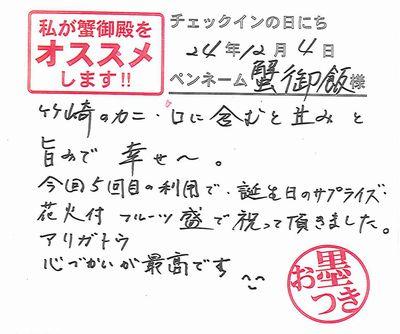 私が蟹御殿を
オススメ
します!!
チェックインの日にち
24年12月4日
ペンネーム 蟹御飯様
竹崎のカニ・口に含むと甘みと
旨みで 幸せ〜。
今回5回目の利用で、誕生日のサプライズ
花火付 フルーツ盛で祝って頂きました。
アリガトウ
心づかいが最高です
お墨つき